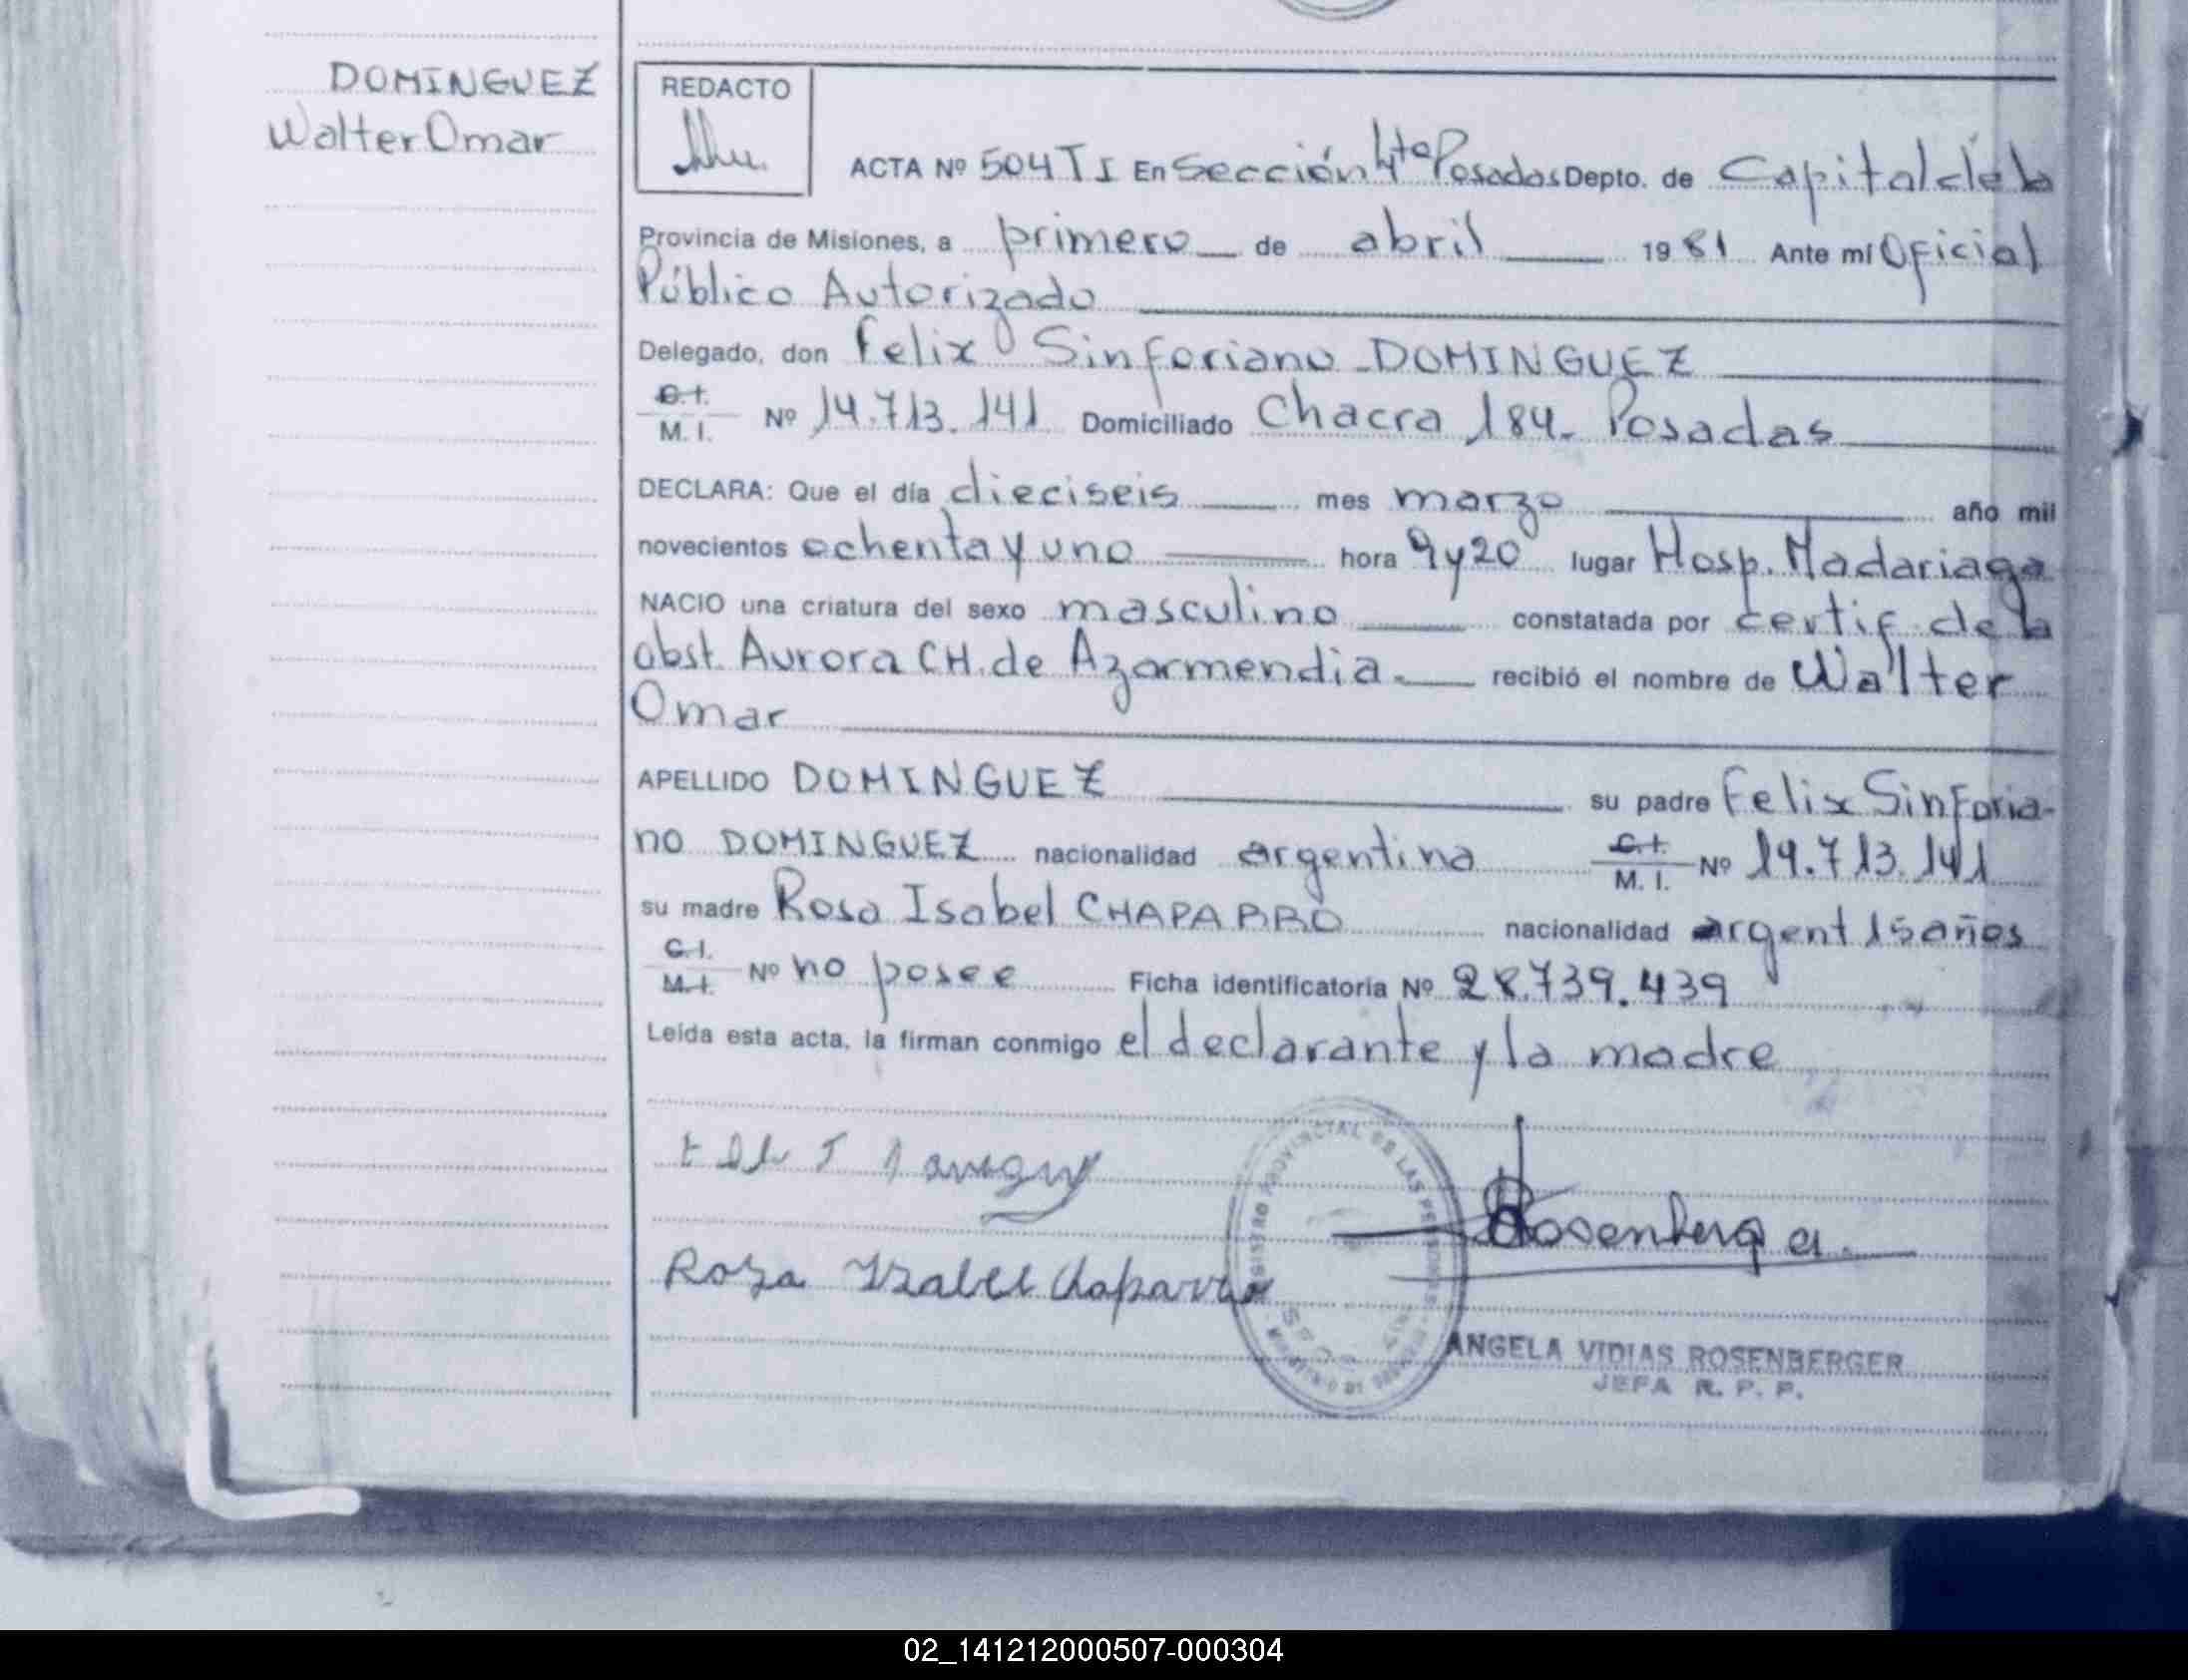 DOMINGUEZ
Walter Omar
REDACTO
ACTA Nº 504 T I En Sección 4ta Posadas Depto. de Capital de la
Provincia de Misiones, a primero de abril 1981 Ante mí Oficial
Público Autorizado
Delegado, don Felix Sinforiano DOMINGUEZ
C.I.
M. I. Nº 14.713.141 Domiciliado Chacra 184. Posadas
DECLARA: Que el día dieciseis mes marzo año mil
novecientos ochenta y uno hora 9 y 20 lugar Hosp. Madariaga
NACIO una criatura del sexo masculino constatada por certif. de la
obst. Aurora CH. de Azarmendia. recibió el nombre de Walter
Omar
APELLIDO DOMINGUEZ su padre Felix Sinforia-
no DOMINGUEZ nacionalidad argentina C.I.
M. I. Nº 14.713.141
su madre Rosa Isabel CHAPARRO nacionalidad argent 15 años
C.I.
M.I. Nº no posee Ficha identificatoria Nº 28.739.439
Leída esta acta, la firman conmigo el declarante y la madre
Roza Izabel Chaparro
Rosenberg
PROVINCIAL DE LAS PERSONAS
ANGELA VIDIAS ROSENBERGER
JEFA R. P. P.
02_141212000507-000304